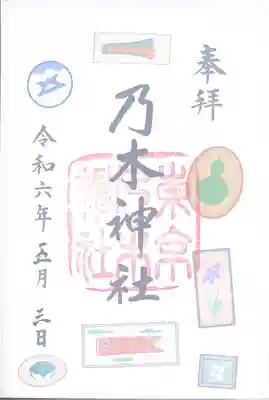 奉拝
乃木神社
東京乃木神社
令和六年五月三日